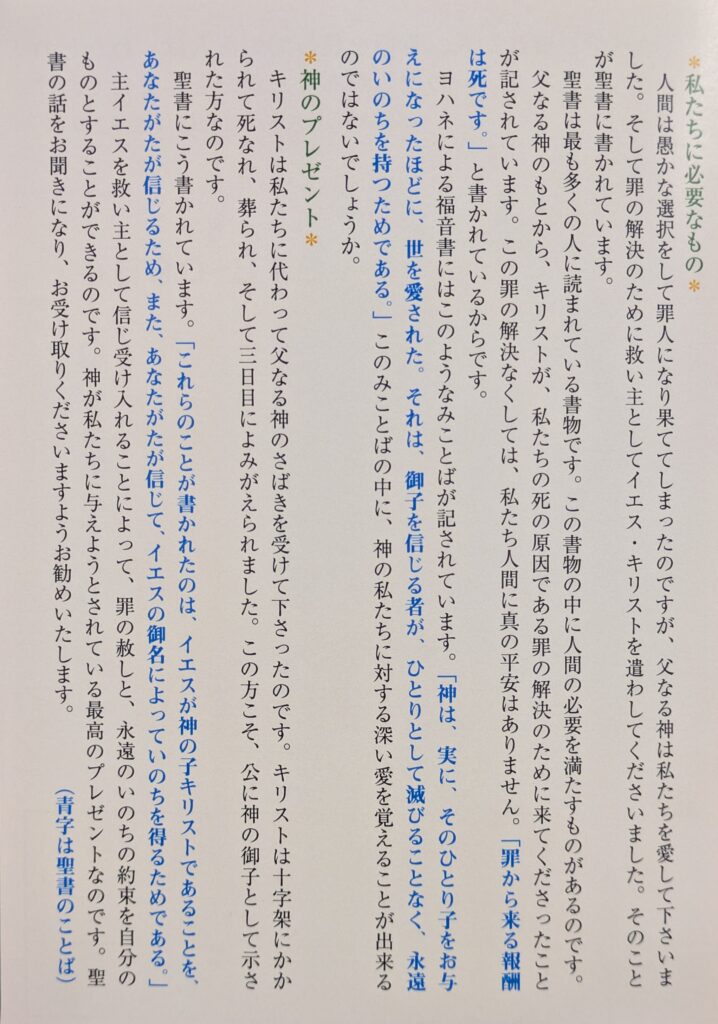 *私たちに必要なもの*
人間は愚かな選択をして罪人になり果ててしまったのですが、父なる神は私たちを愛して下さいま
した。そして罪の解決のために救い主としてイエス・キリストを遣わしてくださいました。そのこと
が聖書に書かれています。
聖書は最も多くの人に読まれている書物です。この書物の中に人間の必要を満たすものがあるのです。
父なる神のもとから、キリストが、私たちの死の原因である罪の解決のために来てくださったこと
が記されています。この罪の解決なくしては、私たち人間に真の平安はありません。「罪から来る報酬
は死です。」と書かれているからです。
ヨハネによる福音書にはこのようなみことばが記されています。「神は、実に、そのひとり子をお与
えになったほどに、世を愛された。それは、御子を信じる者が、ひとりとして滅びることなく、永遠
のいのちを持つためである。」このみことばの中に、神の私たちに対する深い愛を覚えることが出来る
のではないでしょうか。
*神のプレゼント*
キリストは私たちに代わって父なる神のさばきを受けて下さったのです。キリストは十字架にかか
られて死なれ、葬られ、そして三日目によみがえられました。この方こそ、公に神の御子として示さ
れた方なのです。
聖書にこう書かれています。「これらのことが書かれたのは、イエスが神の子キリストであることを、
あなたがたが信じるため、また、あなたがたが信じて、イエスの御名によっていのちを得るためである。」
主イエスを救い主として信じ受け入れることによって、罪の赦しと、永遠のいのちの約束を自分の
ものとすることができるのです。神が私たちに与えようとされている最高のプレゼントなのです。聖
書の話をお聞きになり、お受け取りくださいますようお勧めいたします。
(青字は聖書のことば)